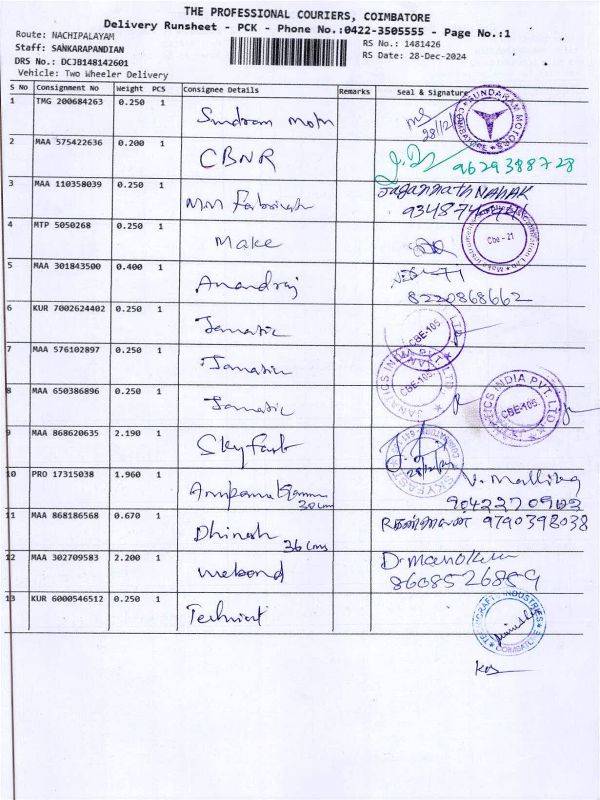 THE PROFESSIONAL COURIERS, COIMBATORE
Delivery Runsheet - PCK - Phone No.:0422-3505555 - Page No.:1
Route: NACHIPALAYAM
RS No.: 1481426
Staff: SANKARAPANDIAN
RS Date: 28-Dec-2024
DRS No.: DCJB148142601
Vehicle: Two Wheeler Delivery
S No Consignment No Weight PCS Consignee Details Remarks Seal & Signature
1 TMG 200684263 0.250 1 Sundram Motor
28/12/
SUNDARAM MOTORS COIMBATORE
2 MAA 575422636 0.200 1 CBNR 9629388728
3 MAA 110358039 0.250 1 MM Jagannath NAHAK
4 MTP 5050268 0.250 1 Make
Cbe - 21
5 MAA 301843500 0.400 1 Anandraj
8220868662
6 KUR 7002624402 0.250 1 Janatic
CBE-105.
7 MAA 576102897 0.250 1 Janatic
JANATICS INDIA PVT. LTD. CBE-105.
8 MAA 650386896 0.250 1 Janatic
JANATICS INDIA PVT. LTD CBE-105.
9 MAA 868620635 2.190 1 Skyfast
SKYFAST
10 PRO 17315038 1.960 1 Anupama
38cm
V. Mallika
11 MAA 868186568 0.670 1 Dhinesh 36cms 9790398038
12 MAA 302709583 2.200 1 Webond D. Manokar
8608526859
13 KUR 6000546512 0.250 1
TECHNOCRAFT INDUSTRIES